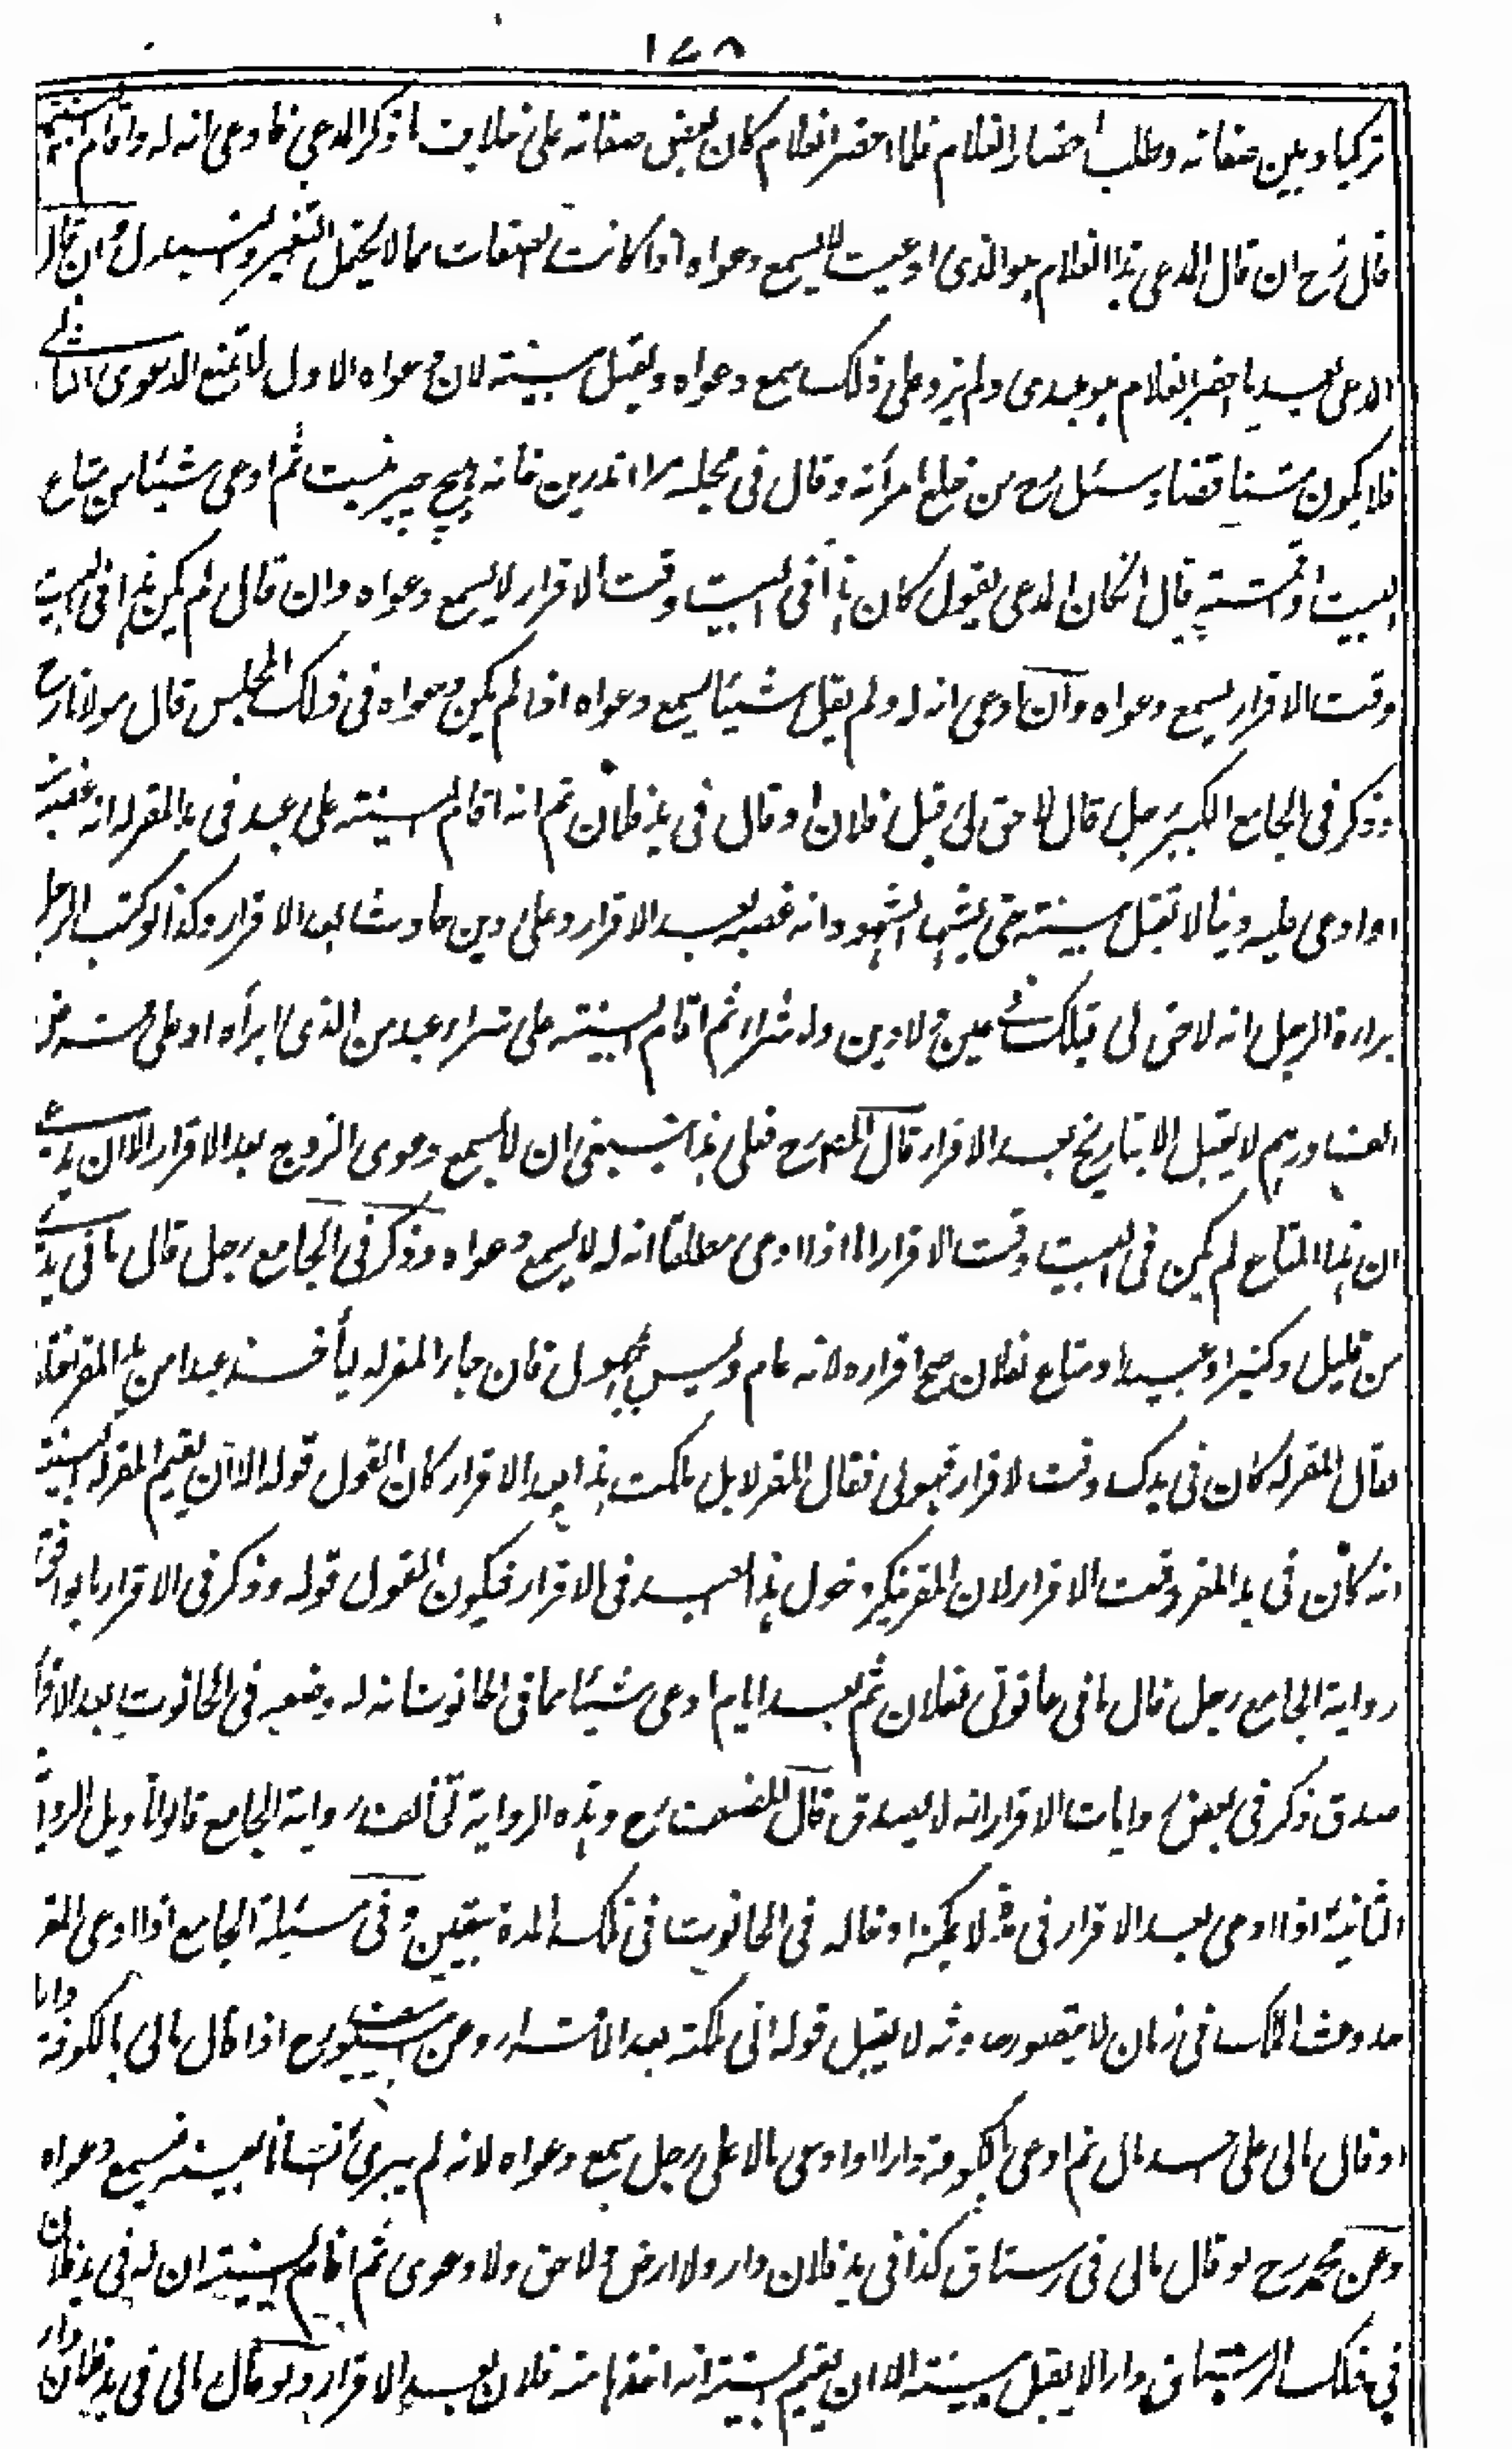 ١٤٨
تركيا وبين صفاته وطلب احضار الغلام فلما احضر الغلام كان بعض صفاته على خلاف ما ذكر المدعي فادعى انه له واقام البينة
قال رح ان قال المدعي هذا الغلام هو الذي ادعيت لا يسمع دعواه اذا كانت الصفات مما لا يحتمل التغير والتبدل وان قال
المدعي بعد ما احضر الغلام هو عبدي ولم يزد على ذلك يسمع دعواه ويقبل بينته لان دعواه الاول لا تمنع الدعوى الثاني
فلا يكون متناقضا وسئل رح من خلع امرأته وقال في مجلسه مرا اندرين خانه هيچ چيز نيست ثم ادعى شيئا من متاع
البيت او قمشته قال ان كان المدعي يقول كان هذا في البيت وقت الاقرار لا يسمع دعواه وان قال لم يكن هذا في البيت
وقت الاقرار يسمع دعواه وان ادعى انه له ولم يقل شيئا يسمع دعواه اذا لم يكن دعواه في ذلك المجلس قال مولانا رح
وذكر في الجامع الكبير رجل قال لا حق لي قبل فلان او قال في يد فلان ثم انه اقام البينة على عبد في يد المقر له انه غصبه
او ادعى عليه دينا لا تقبل بينته حتى يشهد الشهود انه غصبه بعد الاقرار وعلى دين حادث بعد الاقرار وكذا لو كتب الرجل
براءة الرجل انه لا حق لي قبلك في عين ولا دين ولا شراء ثم اقام البينة على شراء عبد من الذي ابرأه او على قرض
الف درهم لا يقبل الا بتاريخ بعد الاقرار قال المصنف رح فعلى هذا ينبغي ان لا يسمع دعوى الزوج بعد الاقرار الا ان يدعي
ان هذا المتاع لم يكن في البيت وقت الاقرار اما اذا ادعى مطلقا انه له لا يسمع دعواه وذكر في الجامع رجل قال ما في يدي
من قليل وكثير او عبيد او متاع لفلان صح اقراره لانه عام وليس بمجهول فان جاء المقر له ليأخذ عبدا من يد المقر
فقال المقر له كان في يدك وقت الاقرار فهو لي فقال المقر لا بل ملكت هذا بعد الاقرار كان القول قوله الا ان يقيم المقر له البينة
انه كان في يد المقر وقت الاقرار لان المقر ينكر دخول هذا العبد في الاقرار فيكون القول قوله وذكر في الاقرار ما يوافق
رواية الجامع رجل قال ما في حانوتي لفلان ثم بعد ايام ادعى شيئا مما في الحانوت انه له وضعه في الحانوت بعد الاقرار
صدق ذكر في بعض روايات الاقرار انه لا يصدق قال المصنف رح وهذه الرواية تخالف رواية الجامع قالوا تأويل الرواية
الثانية اذا ادعى بعد الاقرار في مدة لا يمكنه ادخاله في الحانوت في تلك المدة بيقين وفي مسئلة الجامع اذا ادعى المقر
حدوث الملك في زمان لا يتصور حدوثه لا يقبل قوله اني ملكته بعد الاقرار وعن ابي يوسف رح اذا قال مالي بالكوفة دار
او قال مالي على احد مال ثم ادعى بالكوفة دارا او ادعى مالا على رجل يسمع دعواه لانه لم يبرئ انسانا بعينه فيسمع دعواه
وعن محمد رح لو قال مالي في رستاق كذا في يد فلان دار ولا ارض ولا حق ولا دعوى ثم اقام البينة ان له في يد فلان
في ذلك الرستاق دارا لا يقبل بينته الا ان يقيم البينة انه اخذها منه فلان بعد الاقرار ولو قال مالي في يد فلان دار